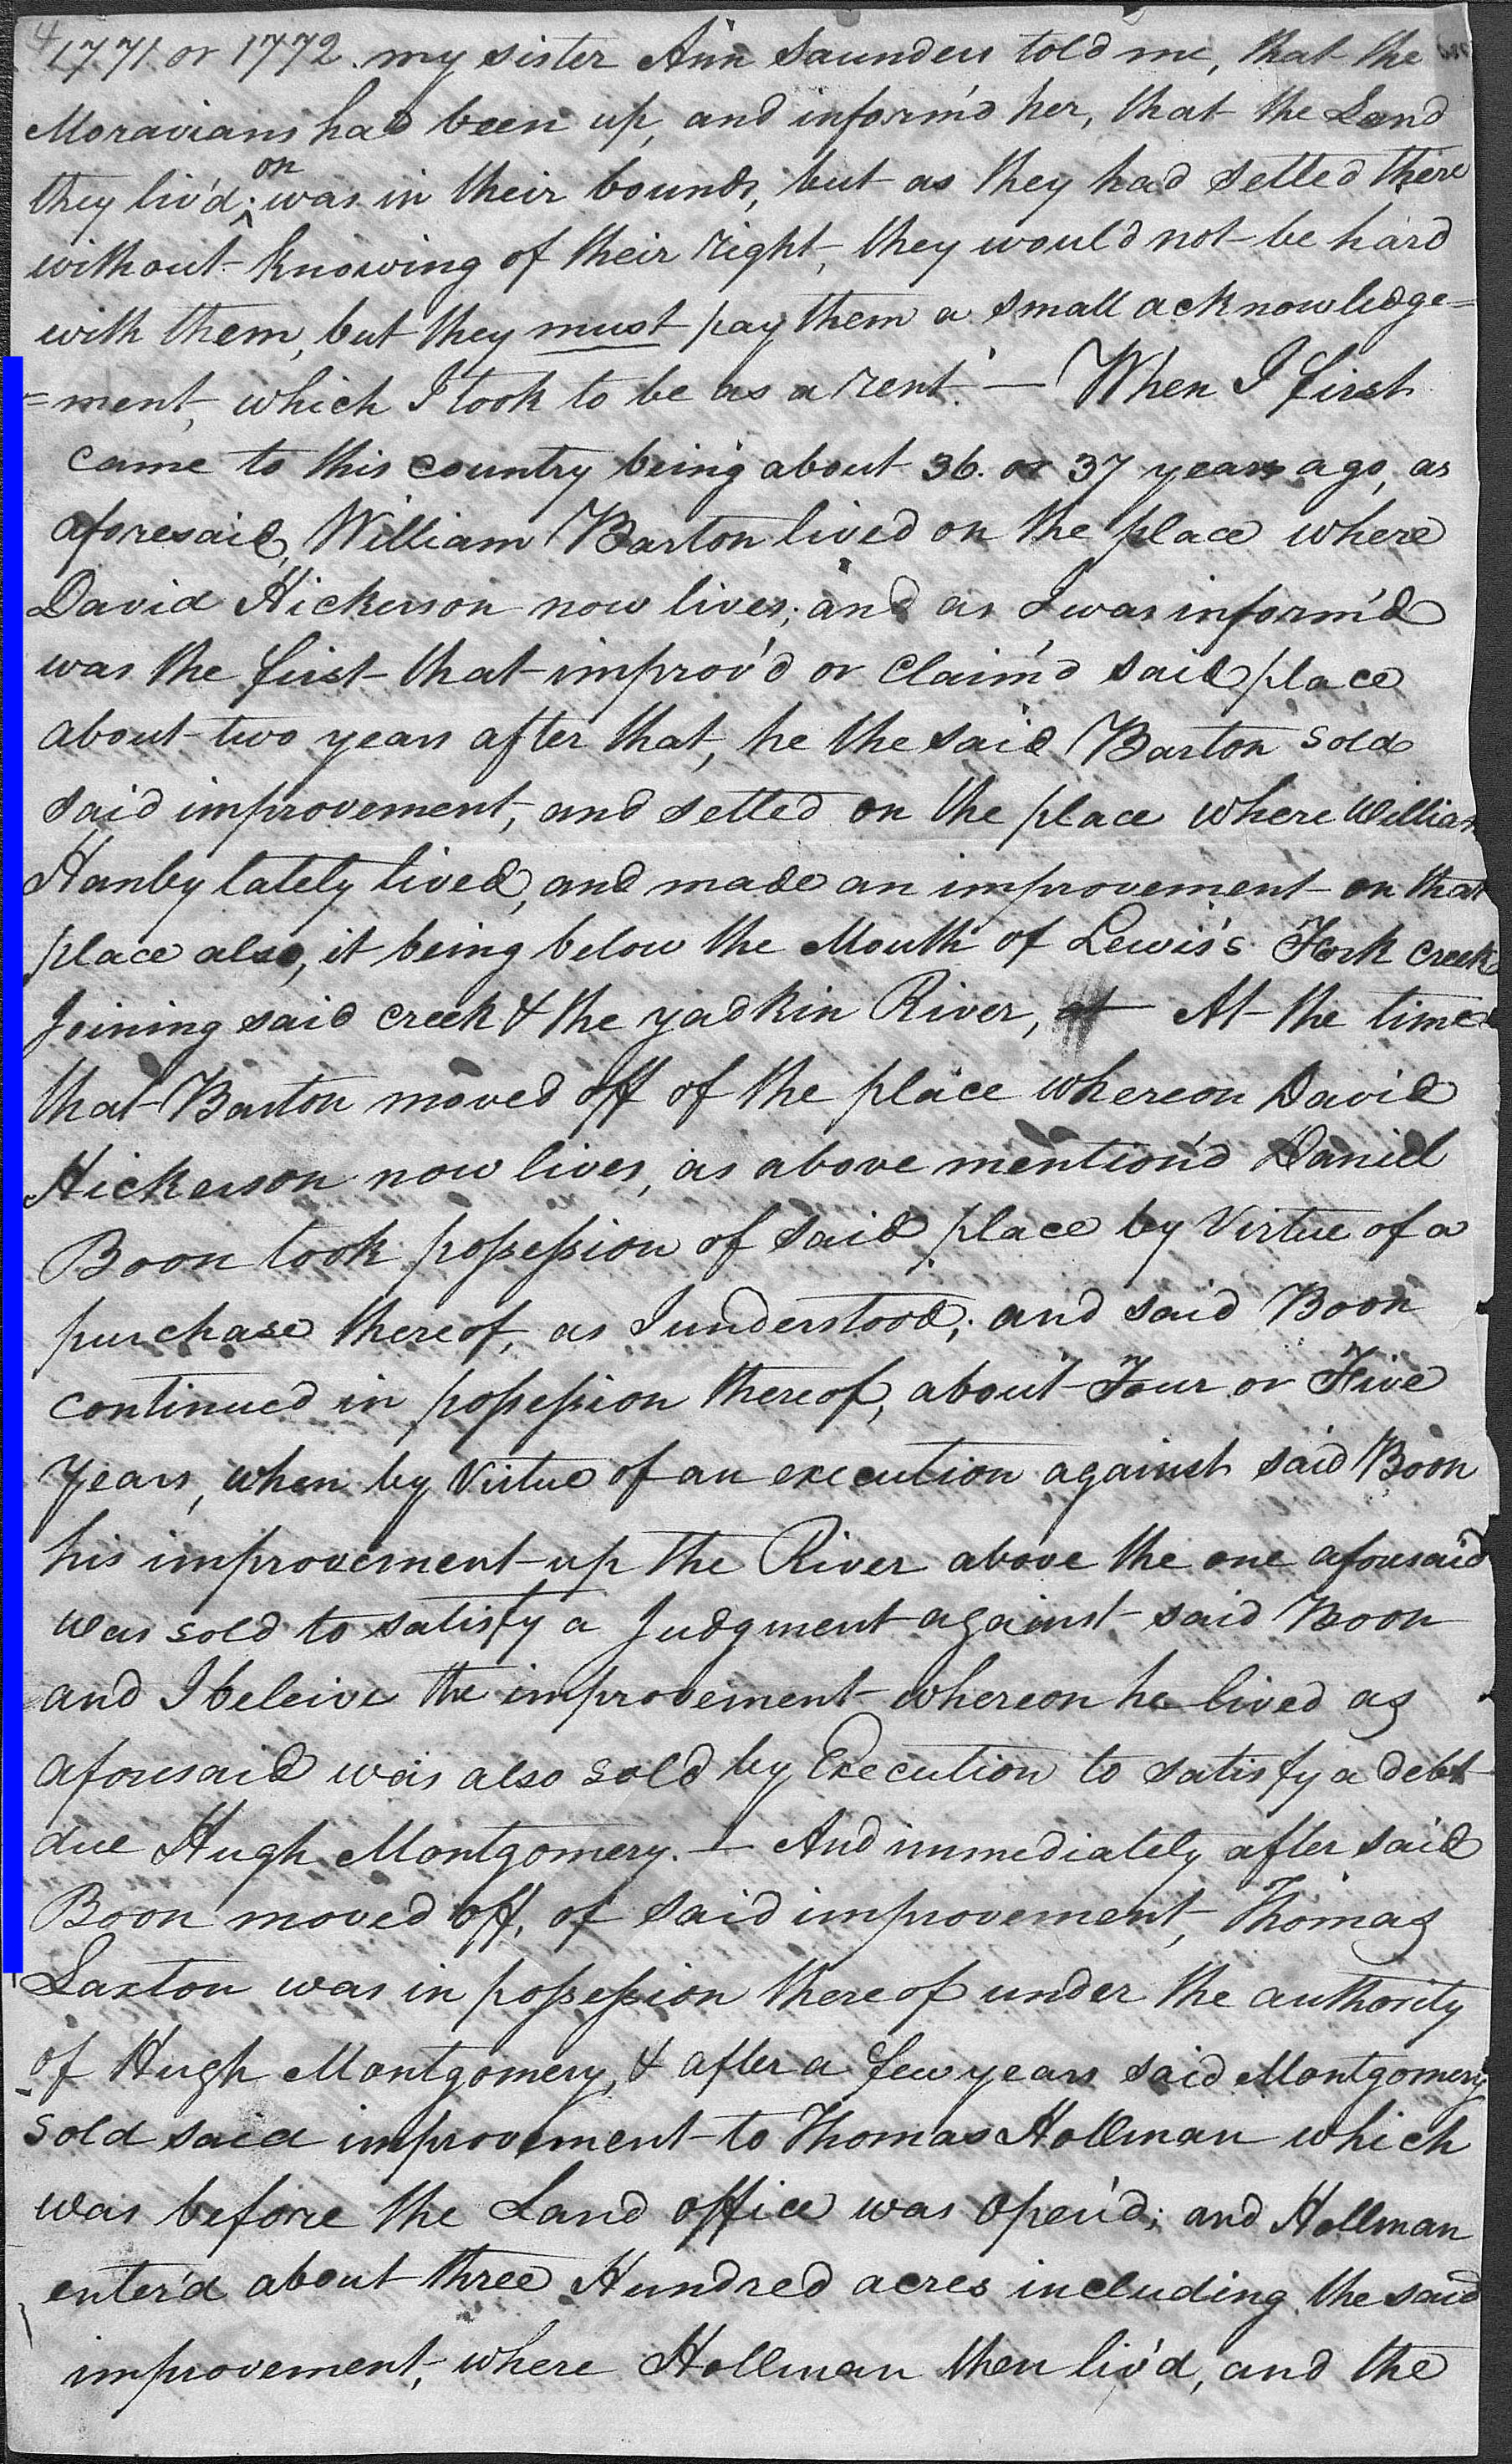 4
1771 or 1772. my sister Ann Saunders told me, that the
Moravians had been up, and inform'd her, that the Land
they liv'd on was in their bounds, but as they had setled there
without knowing of their right, they would not be hard
with them, but they must pay them a small acknowledge=
=ment, which I took to be as a rent. — When I first
came to this country being about 36. or 37 years ago, as
aforesaid, William Barton lived on the place where
David Hickerson now lives; and as I was inform'd
was the first that improv'd or claim'd said place
about two years after that, he the said Barton sold
said improvement, and setled on the place where William
Hanby lately lived, and made an improvement on that
place also, it being below the Mouth of Lewis's Fork creek
Joining said creek & the yadkin River, at At the time
that Barton moved off of the place whereon David
Hickerson now lives, as above mention'd Daniel
Boon took possession of said place by Virtue of a
purchase thereof, as I understood; and said Boon
continued in possession thereof, about Four or Five
Years, when by Virtue of an execution against said Boon
his improvement up the River above the one aforesaid
was sold to satisfy a Judgment against said Boon
and I beleive the improvement whereon he lived as
aforesaid was also sold by Execution to satisfy a debt
due Hugh Montgomery. — And immediately after said
Boon moved off, of said improvement, Thomas
Laxton was in possession thereof under the authority
of Hugh Montgomery, & after a few years said Montgomery
sold said improvement to Thomas Hollman which
was before the Land office was open'd; and Hollman
enter'd about three Hundred acres including the said
improvement, where Hollman then liv'd, and the